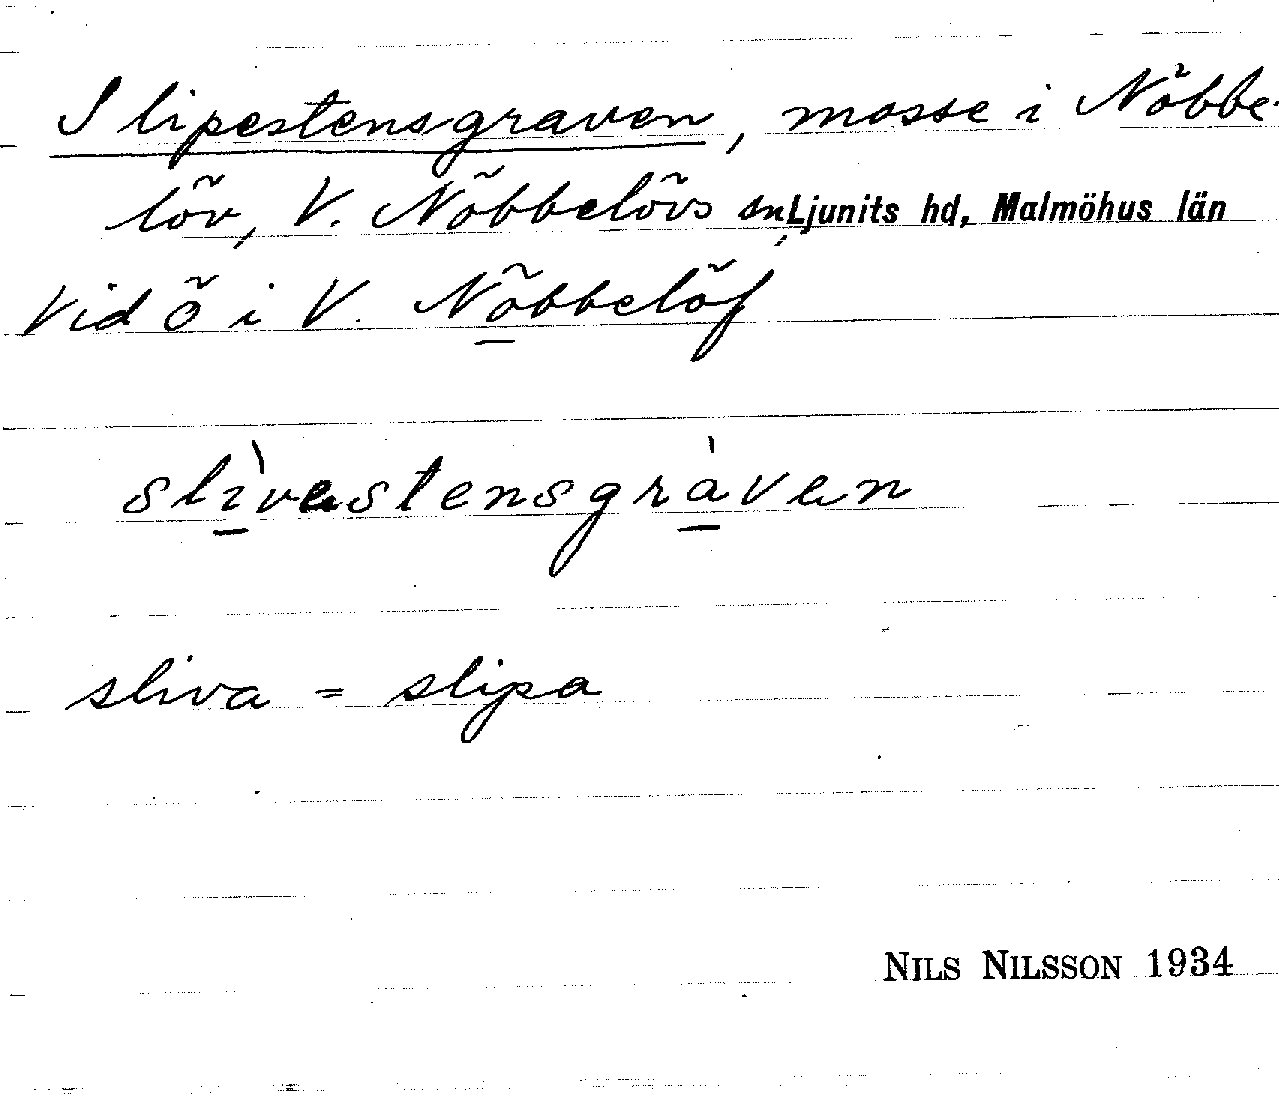 Slipestensgraven, mosse i Nöbbe-
löv, V. Nöbbelövs sn, Ljunits hd, Malmöhus län
Vid ö i V. Nöbbelöf
slìvestensgràven
sliva = slipa
NILS NILSSON 1934